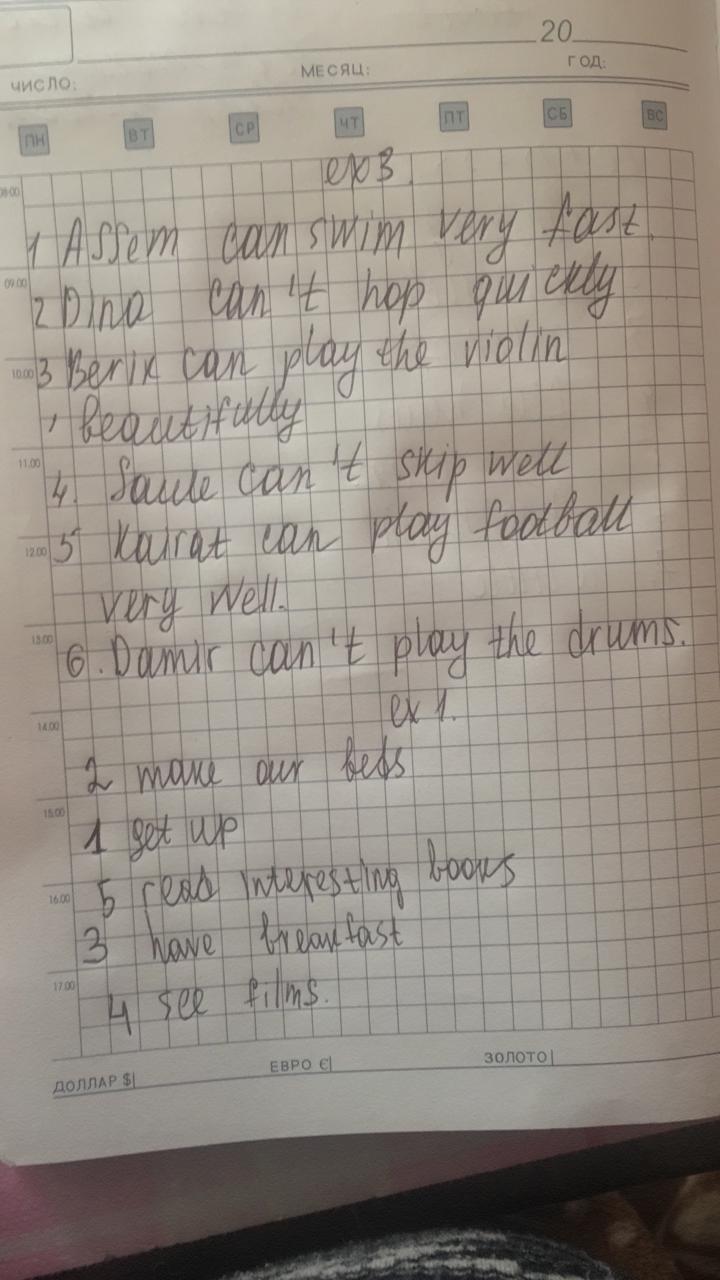 20
ЧИСЛО: МЕСЯЦ: ГОД:
ПН ВТ СР ЧТ ПТ СБ ВС
ex 3
08:00
1 Assem can swim very fast.
09.00
2 Dina can't hop quickly
10.00
3 Berik can play the violin
beautifully
11.00
4. Saule can't skip well
12.00
5 Kairat can play football
very well.
13.00
6. Damir can't play the drums.
ex 1.
14.00
2 make our beds
15.00
1 get up
5 read interesting books
16.00
3 have breakfast
17.00
4 see films.
ДОЛЛАР $| ЕВРО €| ЗОЛОТО|